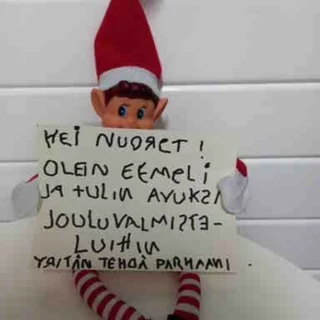 HEI NUORET!
OLEN EEMELI
JA TULIN AVUKSI
JOULUVALMISTE-
LUIHIN
YRITÄN TEHDÄ PARHAANI